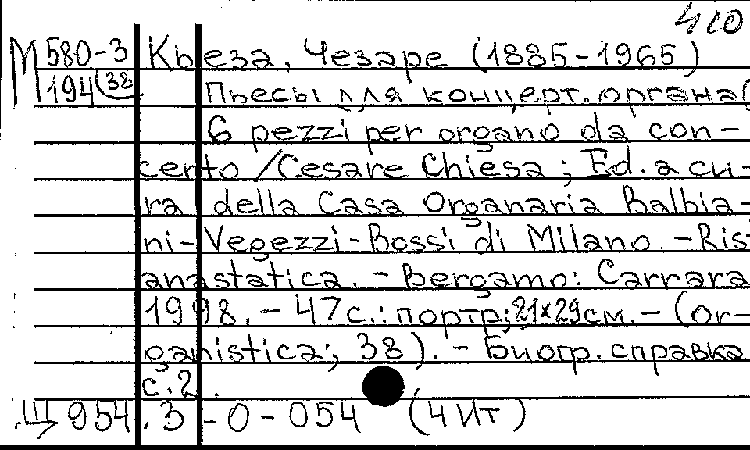 410
М 580-3 Кьеза, Чезаре (1885-1965)
194(38 Пьесы для концерт. органа(
6 pezzi per organo da con-
certo / Cesare Chiesa ; Ed. a cu-
ra della Casa Organaria Balbia-
ni-Vegezzi-Bossi di Milano. - Ris
anastatica. - Bergamo: Carrara
1998. - 47 с.: портр; 21x29 см. - (Or-
ganistica; 38). - Биогр. справка
с. 2.
Щ 954.3-0-054 (4Ит)